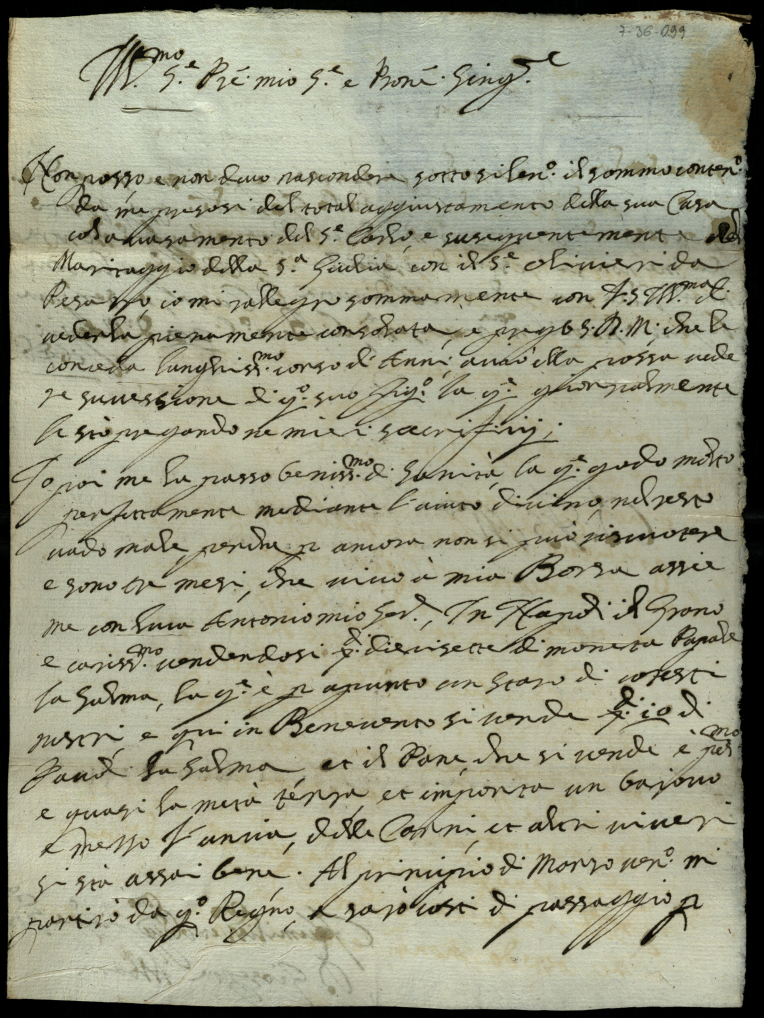 7-36-099
Ill.mo S.e Prē. mio S.e e Pronē. Sing.e
Non posso e non devo nascondere sotto silen.o il sommo conten.o
da me presosi del total aggiustamento della sua Casa
col accasamento del S.e Carlo, e susequentemente del
Mariaggio della S.a Giulia con il S.e Olivieri da
Pesaro, io mi rallegro sommamente con V.S. Ill.ma di
vederla pienamente consolata, e prego S.D.M. che le
conceda lunghiss.mo corso di Anni, acciò ella possa vede
re successione di q.o suo Fig.o la q.e giornalmente
le stò pregando ne miei sacrifitij;
Io poi me la passo beniss.mo di sanità, la q.e godo molto
perfettamente mediante l'aiuto divino, nel resto
vado male perche p ancora non si può riscuotere
e sono tre mesi, che vivo à mia Borsa assie
me con Antonio mio Ser.e, In Napoli il Grano
e cariss.mo vendendosi diecisette di moneta Papale
la salma, la q.e è p apunto un staro di cotesti
nostri, e qui in Benevento si vende 10 di
la salma et il Pane, che si vende è
e quasi la metà terra, et importa un bajocco
e mezzo l'oncia, delle Carni, et altri viveri
si stà assai bene. Al principio di Marzo ven.o mi
partirò da q.o Regno, e sarò costi di passaggio p